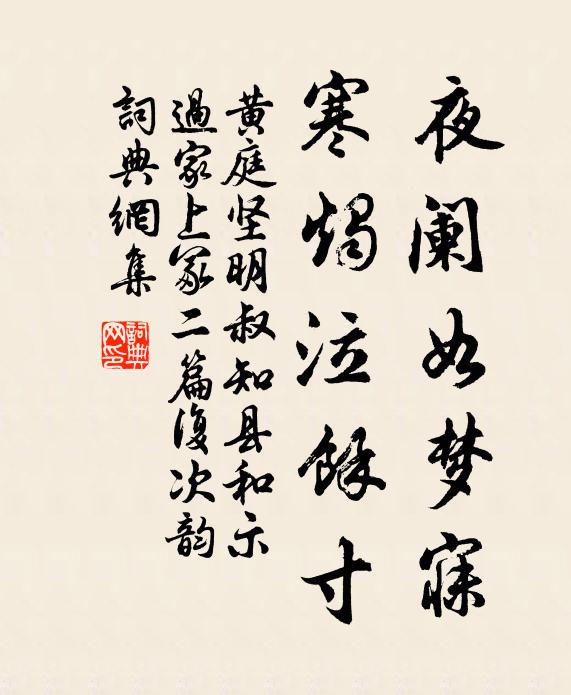 夜阑如梦寐
寒烛泣馀寸
黄庭坚明叔知县和示
過家上冢二篇復次韵
詞典網集
詞典网印